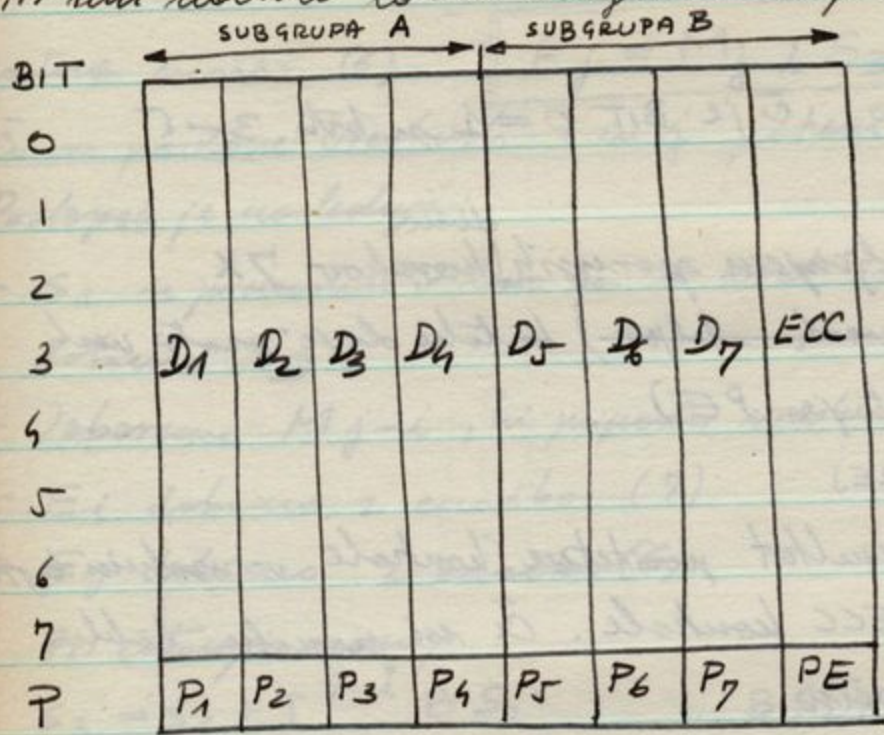 SUBGRUPA A SUBGRUPA B
BIT
0
1
2
3 D1 D2 D3 D4 D5 D6 D7 ECC
4
5
6
7
P P1 P2 P3 P4 P5 P6 P7 PE